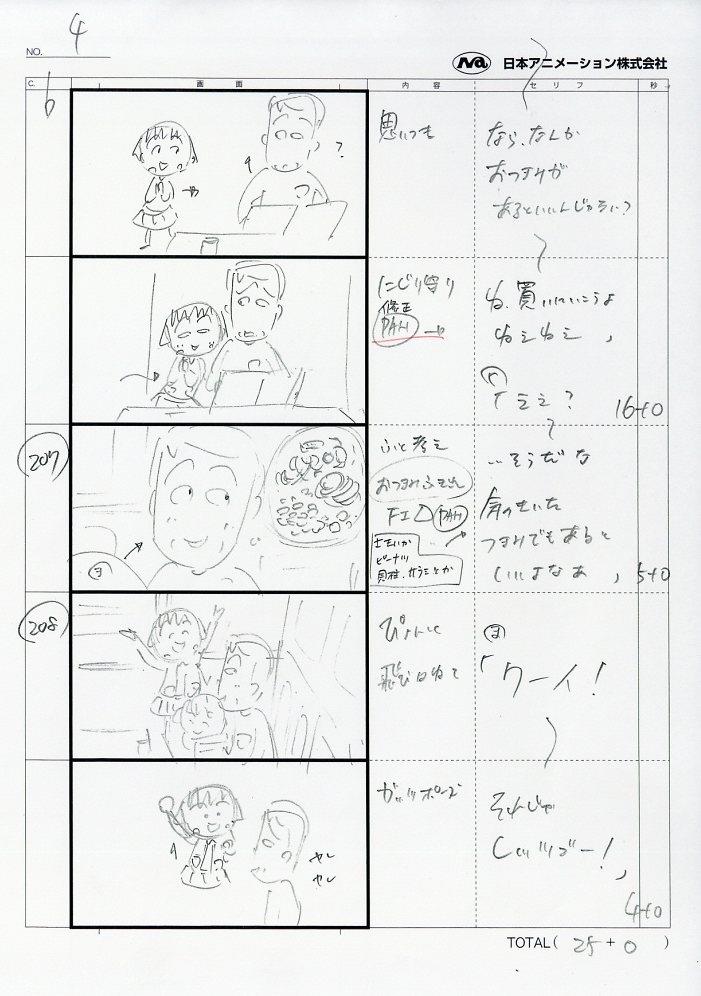 NO. 4
日本アニメーション株式会社
C. 画面 内容 セリフ 秒
6
思いつき
なら、なんか
おつまみが
あるといいんじゃない?
?
にじり寄り
修正
PAN →
ね、買いにいこうよ
ねえねえ、
「ええ?
16+0
207
ふと考え
おつまみふきだし
FI PAN
ピーナツ
…そうだな
気のきいた
つまみでもあると
いいよなあ、
5+0
ま
208
ぴょんと
飛び跳ねて
ま
「ワーイ!
ガッツポーズ
それじゃ
レッツゴー!」
ヤレ
ヤレ
4+0
TOTAL( 25 + 0 )